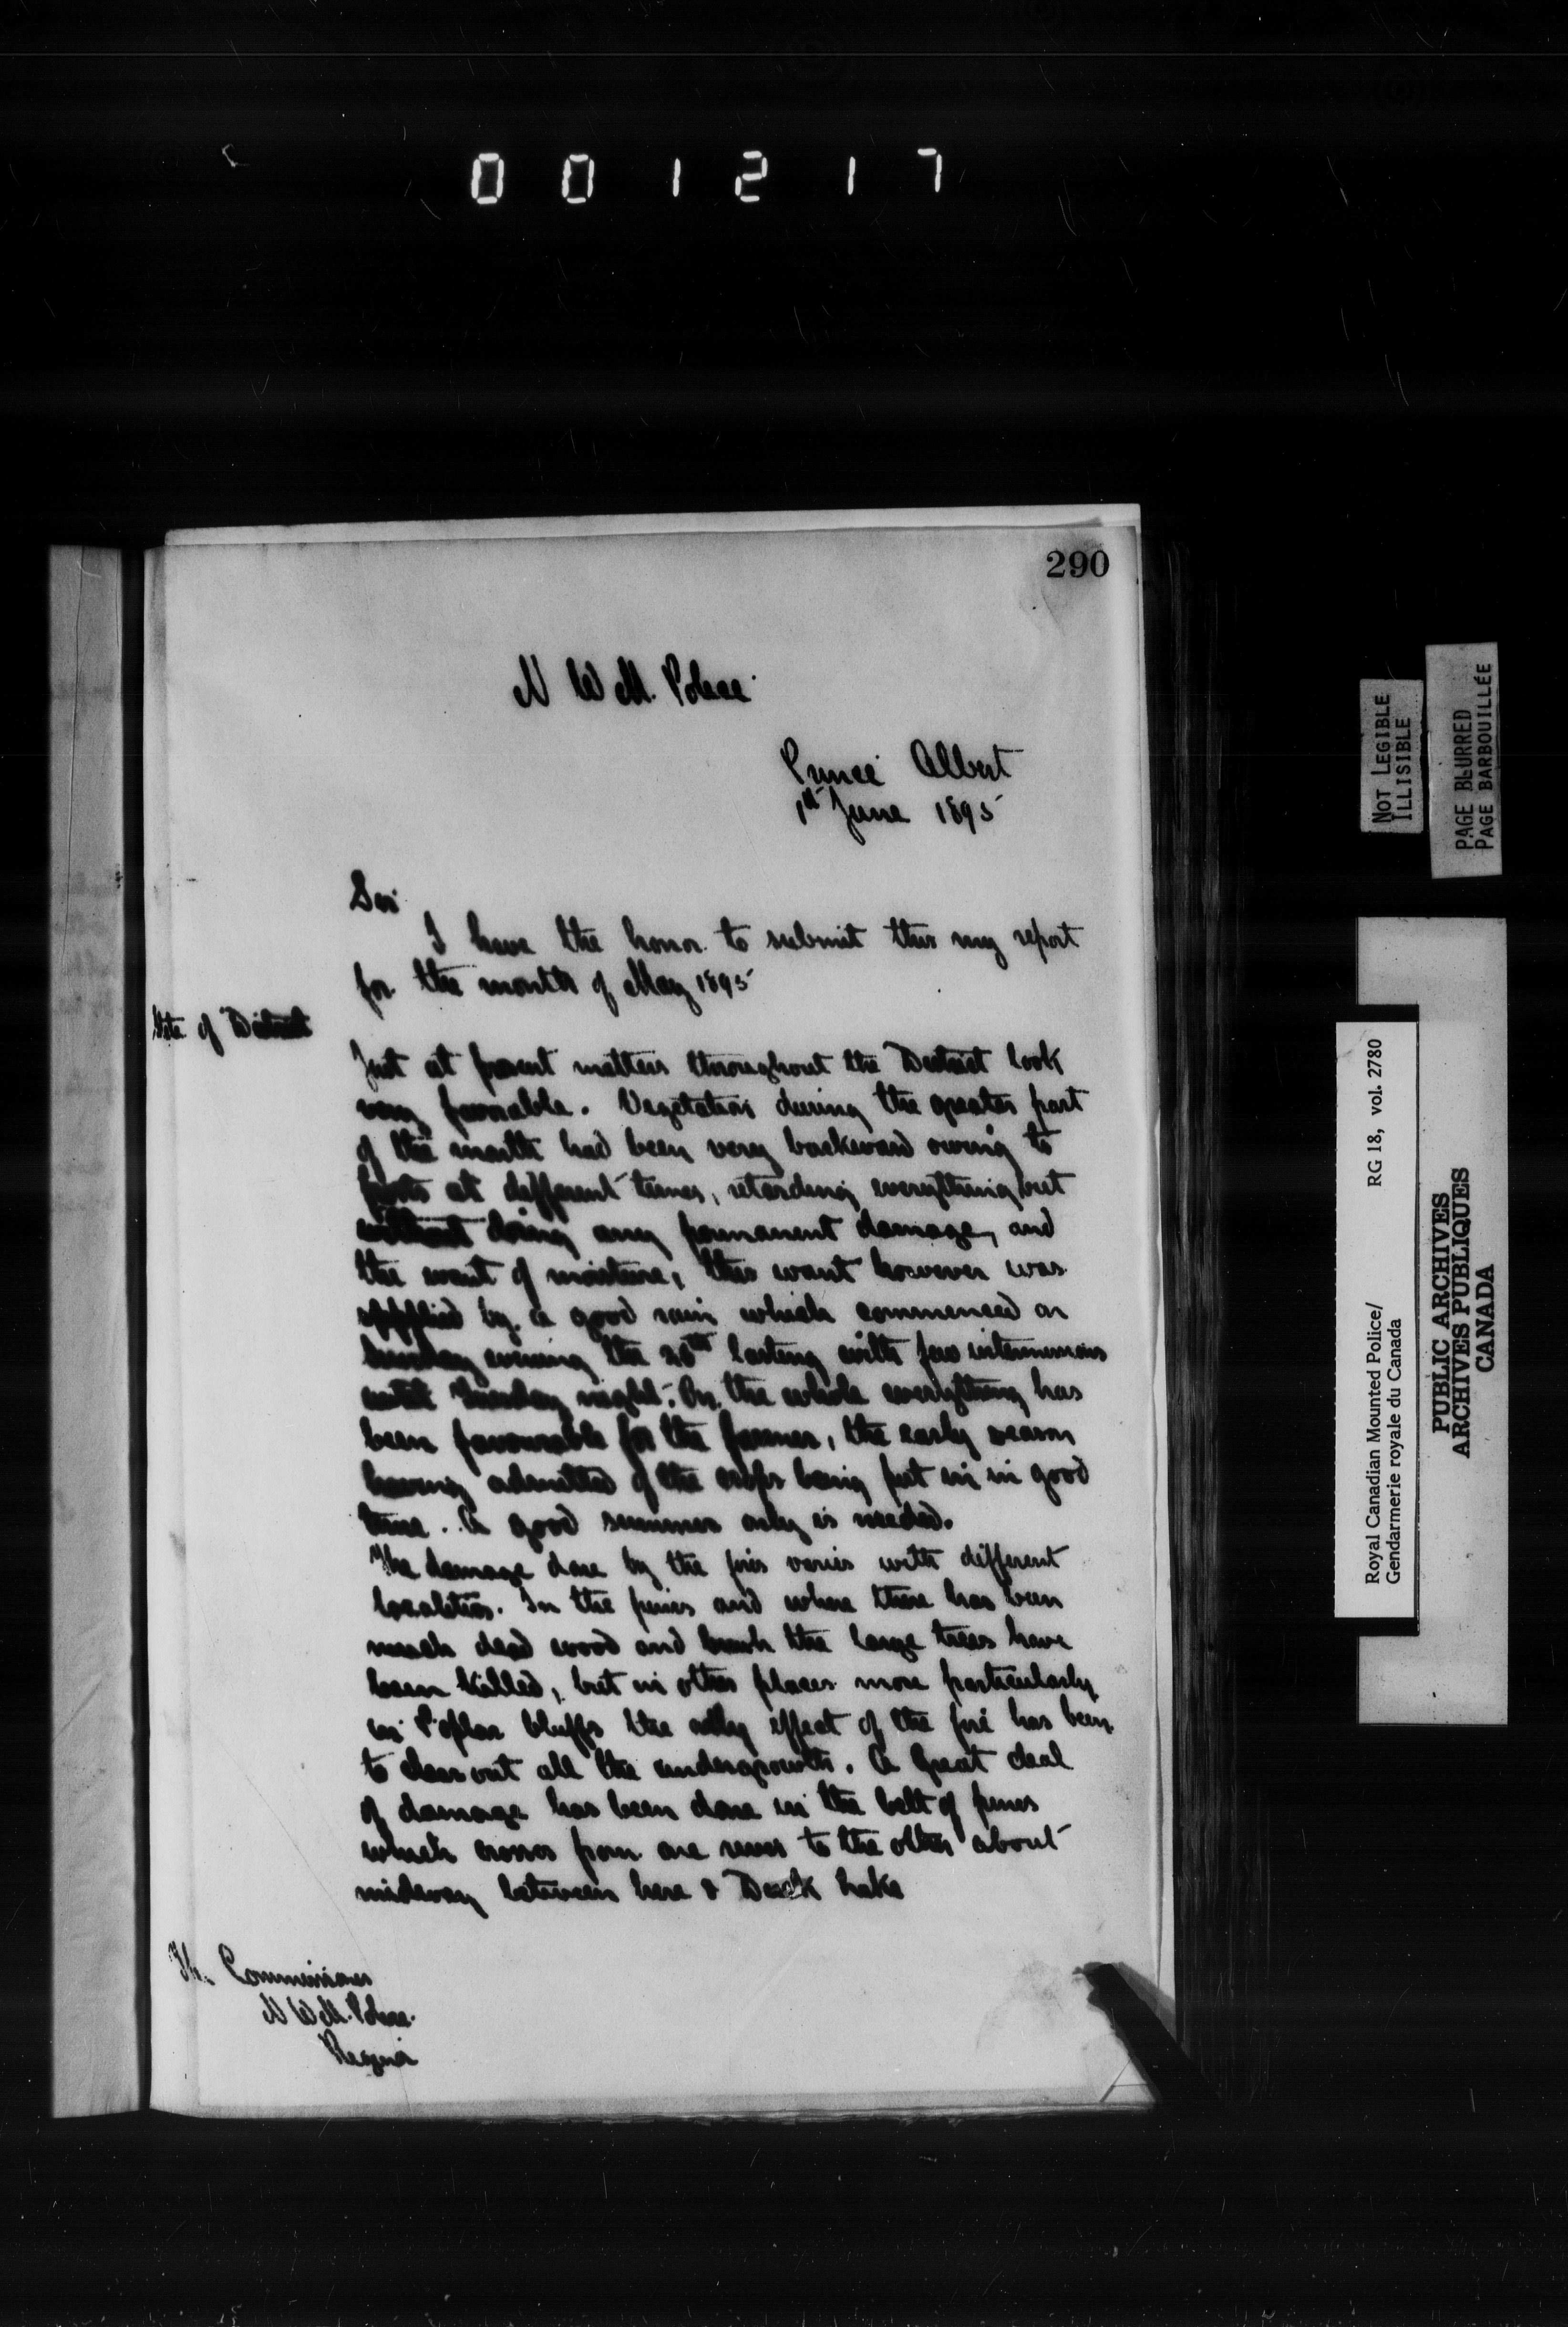 001217
290
N W M. Police
Prince Albert
1st June 1895
Sir
I have the honor to submit this my report
for the month of May 1895
State of District
Just at present matters throughout the District look
very favorable. Vegetation during the greater part
of the month had been very backward owing to
frosts at different times, retarding everything but
without doing any permanent damage, and
the want of moisture, this want however was
supplied by a good rain which commenced on
Sunday evening the 26th lasting with few intermissions
until night. On the whole everything has
been favourable for the farmer, the early season
having admitted of the crops being put in in good
time. A good summer only is needed.
The damage done by the fires varies with different
localities. In the pines and where there has been
much dead wood and brush the large trees have
been killed, but in other places more particularly
in Poplar bluffs the only effect of the fire has been
to clear out all the undergrowth. A great deal
of damage has been done in the belt of pines
which crosses from one river to the other about
midway between here & Duck Lake
The Commissioner
N W M. Police
Regina
NOT LEGIBLE
ILLISIBLE
PAGE BLURRED
PAGE BARBOUILLÉE
Royal Canadian Mounted Police/ RG 18, vol. 2780
Gendarmerie royale du Canada
PUBLIC ARCHIVES
ARCHIVES PUBLIQUES
CANADA